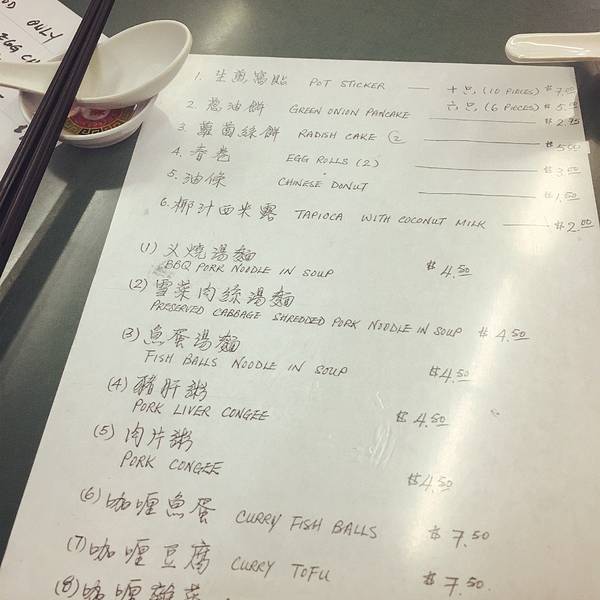 OOD ONLY
EGG CH
1. 生煎窩貼 POT STICKER 十只, (10 PIECES) $7.00
2. 葱油餅 GREEN ONION PANCAKE 六只, (6 PIECES) $5.50
$2.75
3. 蘿蔔絲餅 RADISH CAKE (2) $5.00
4. 春卷 EGG ROLLS (2) $3.00
5. 油條 CHINESE DONUT $1.50
6. 椰汁西米露 TAPIOCA WITH COCONUT MILK $2.00
(1) 义燒湯麵
BBQ PORK NOODLE IN SOUP $4.50
(2) 雪菜肉絲湯麵
PRESERVED CABBAGE SHREDDED PORK NOODLE IN SOUP $4.50
(3) 魚蛋湯麵
FISH BALLS NOODLE IN SOUP $4.50
(4) 豬肝粥
PORK LIVER CONGEE $4.50
(5) 肉片粥
PORK CONGEE $4.50
(6) 咖喱魚蛋 CURRY FISH BALLS $7.50
(7) 咖喱豆腐 CURRY TOFU $7.50
(8) 咖喱